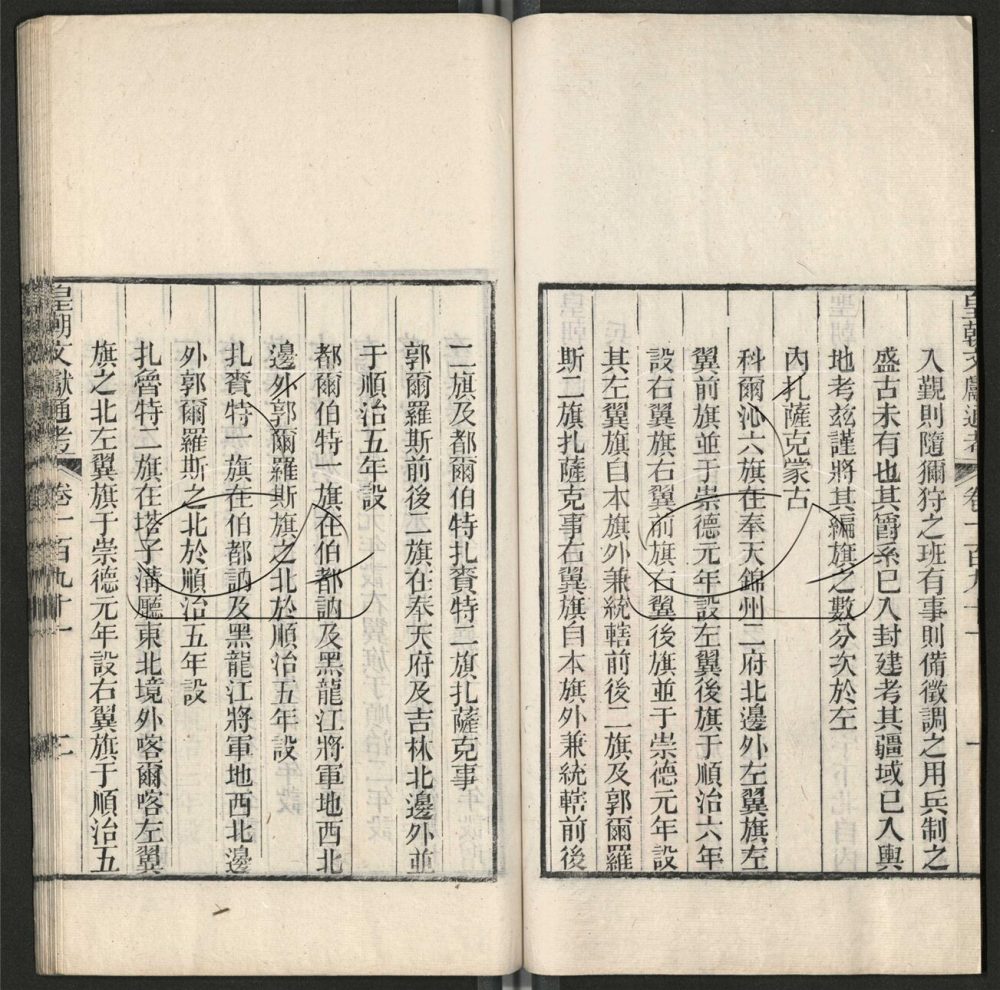 皇朝文獻通考 卷一百九十一 一
入覲則隨獮狩之班有事則備徵調之用兵制之
盛古未有也其爵系已入封建考其疆域已入輿
地考茲謹將其編旗之數分次於左
內扎薩克蒙古
科爾沁六旗在奉天錦州二府北邊外左翼旗左
翼前旗並于崇德元年設左翼後旗于順治六年
設右翼旗右翼前旗右翼後旗並于崇德元年設
其左翼旗自本旗外兼統轄前後二旗及郭爾羅
斯二旗扎薩克事右翼旗自本旗外兼統轄前後
二旗及都爾伯特扎賚特二旗扎薩克事
郭爾羅斯前後二旗在奉天府及吉林北邊外並
于順治五年設
都爾伯特一旗在伯都訥及黑龍江將軍地西北
邊外郭爾羅斯旗之北於順治五年設
扎賚特一旗在伯都訥及黑龍江將軍地西北邊
外郭爾羅斯之北於順治五年設
扎魯特二旗在塔子溝廳東北境外喀爾喀左翼
旗之北左翼旗于崇德元年設右翼旗于順治五
皇朝文獻通考 卷一百九十一 二